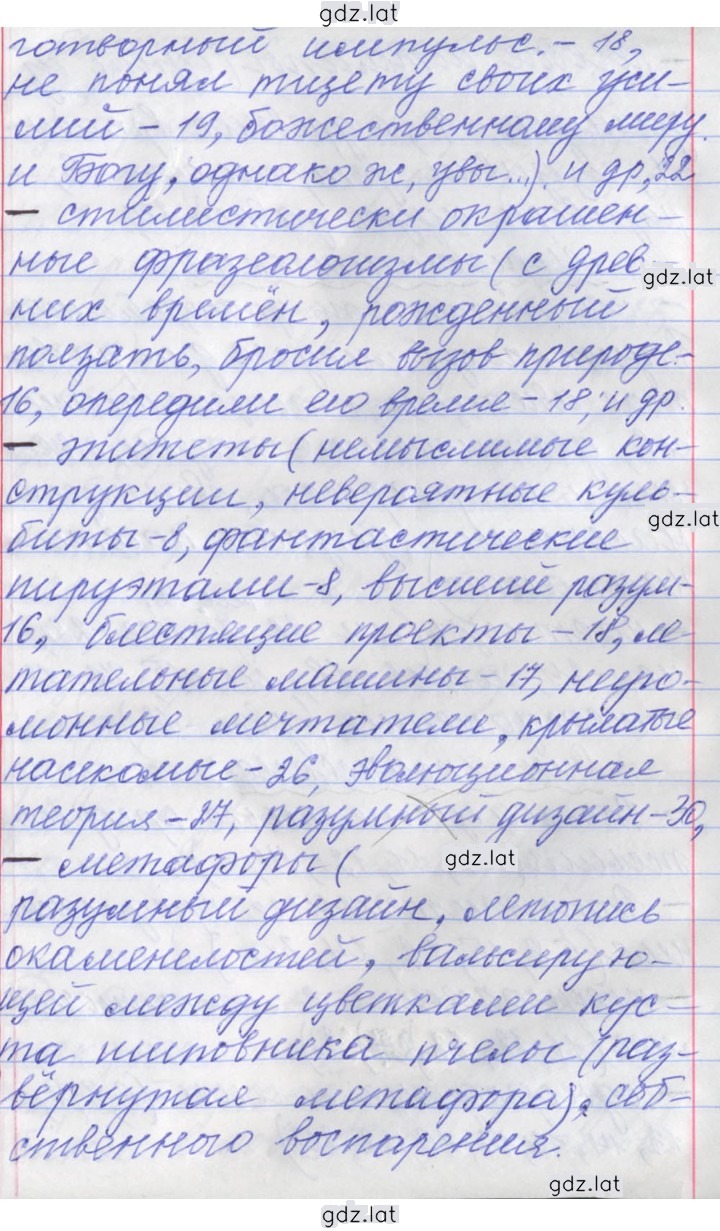 gdz.lat
готворный импульс. - 18,
не понял тщету своих уси-
лий - 19, божественному миру.
и Богу, однако ж, увы...). и др, 22
- стилистически окрашен-
ные фразеологизмы (с древ-
gdz.lat
них времён, рожденный
ползать, бросил вызов природе-
16, опередили его время - 18, и др.
- эпитеты (немыслимые кон-
струкции, невероятные куль-
gdz.lat
биты-8, фантастические
пируэтами-8, высший разум-
16, блестящие проекты - 18, ле-
тательные машины - 17, неуго-
монные мечтатели, крылатые
насекомые - 26, эволюционная
теория - 27, разумный дизайн - 30,
- метафоры (
gdz.lat
разумный дизайн, летопись
окаменелостей, вальсирую-
щей между цветками кус-
та шиповника пчелы (раз-
вёрнутая метафора), соб-
ственного воспарения.
gdz.lat
gdz.lat